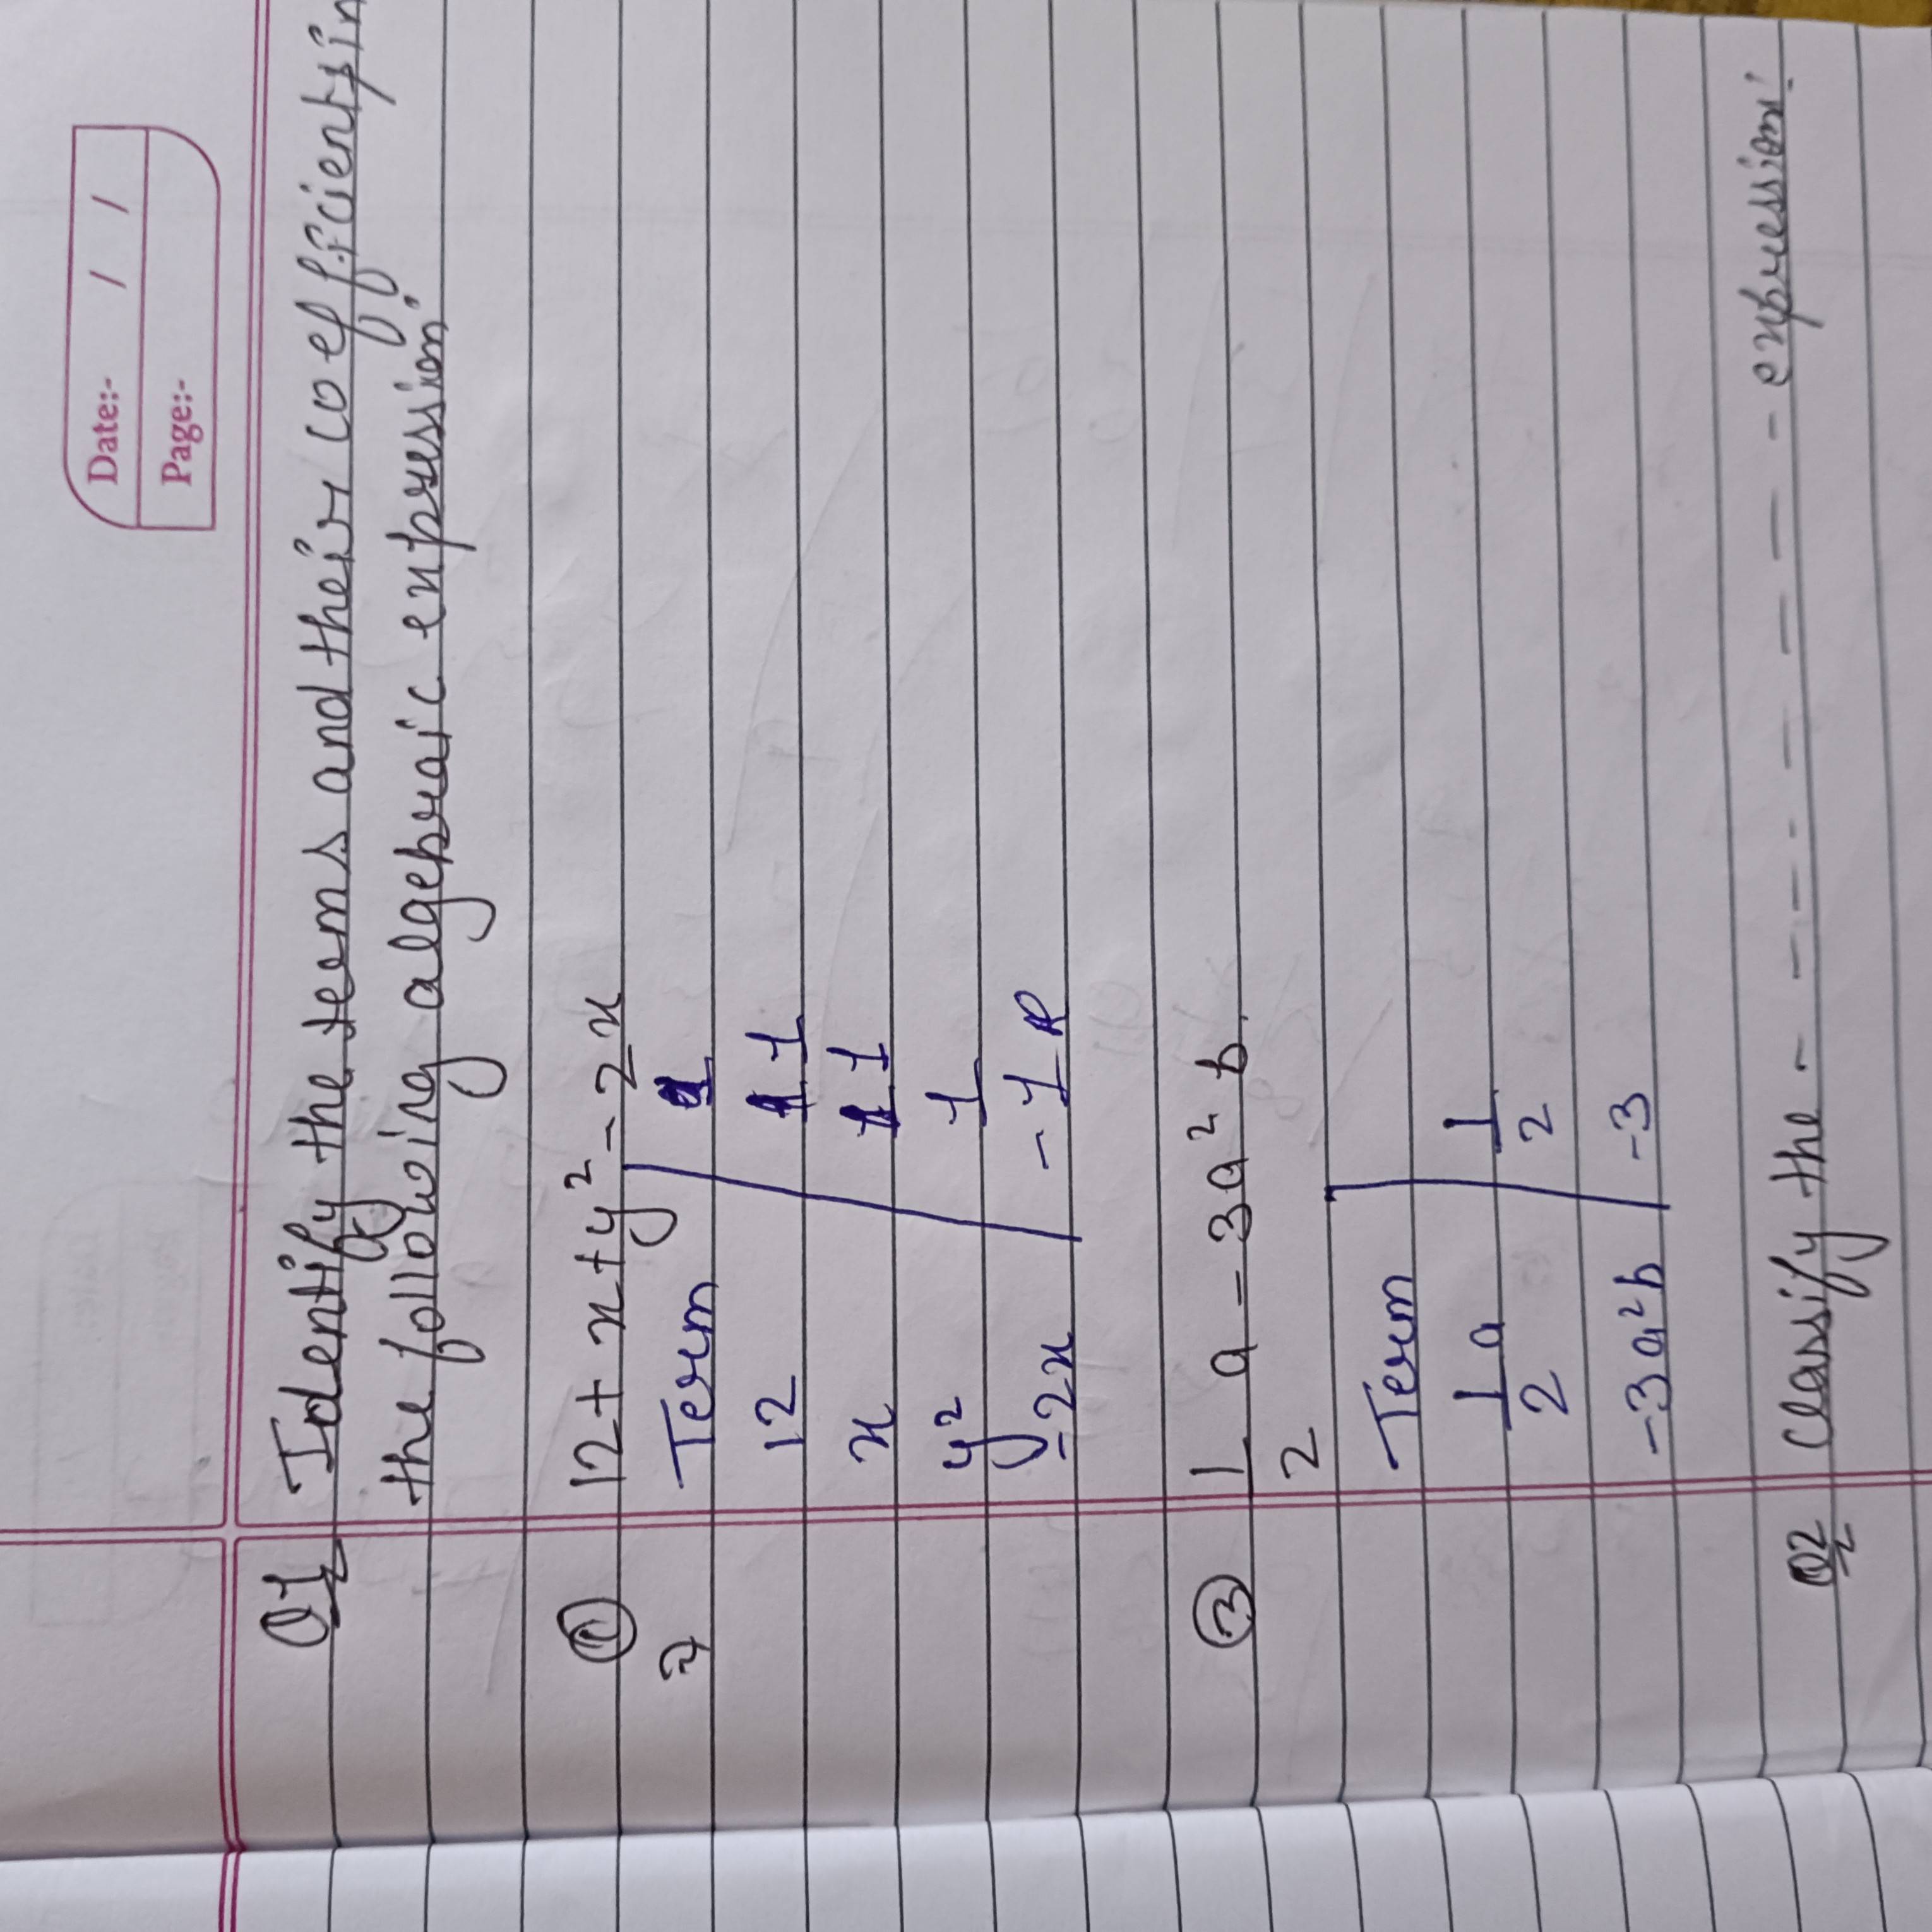 Date:- / /
Page:-
Q1 Identify the terms and their coefficients in
the following algebraic expression.
① 12 + x + y² - 2x
Term
12 1
x 1
y² 1
-2x -1
③ 1/2 a - 3a² b.
Term
1/2 a 1/2
-3a²b -3
Q2 Classify the - - - - - - - - - expression.